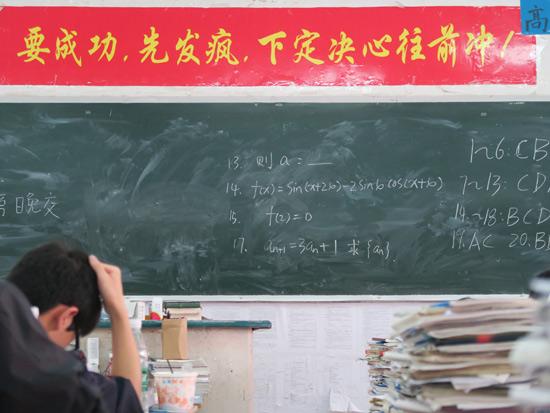 高
要成功,先发疯,下定决心往前冲!
13. 则 a = __
14. f(x)=sin(x+2φ)-2sinφcos(x+φ)
15. f(2)=0
17. aₙ₊₁=3aₙ+1 求{aₙ}
日晚交
1~6: CB
7~13: CD
14~18: BCD
19. AC 20. B